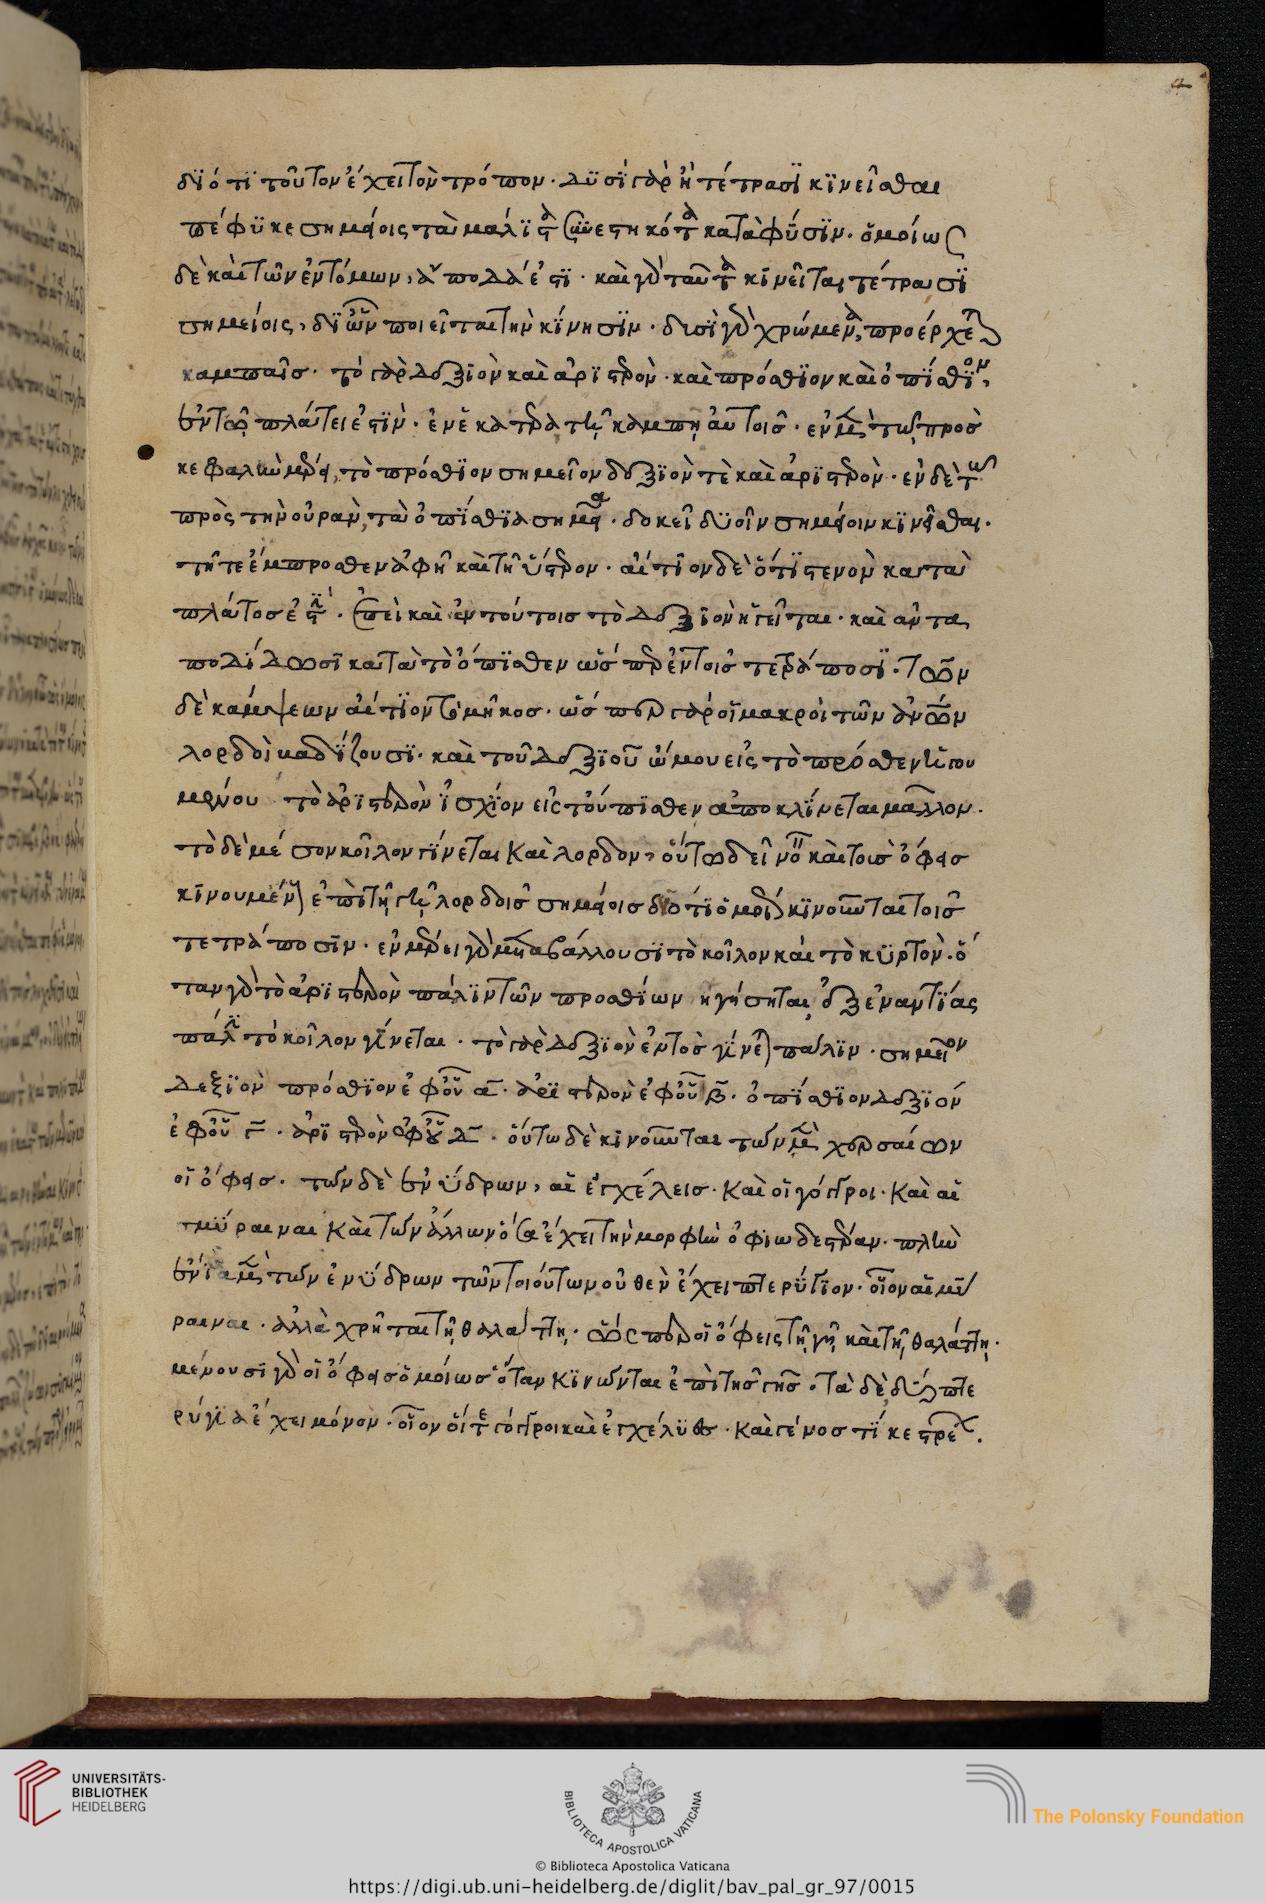 4
διότι τοῦτον ἔχει τὸν τρόπον· δυσὶ γὰρ ἢ τέτρασι κινεῖσθαι
πέφυκε σημείοις τὰ μάλιστα συνεστηκότα κατὰ φύσιν. ὁμοίως
δὲ καὶ τῶν ἐντόμων, ἃ πολλά ἐστι· καὶ γὰρ ταῦτα κινεῖται τέτρασι
σημείοις, δι ὧν ποιεῖται τὴν κίνησιν· δισὶ γὰρ χρώμενα, προέρχεται
καμπαῖς· τὸ γὰρ δεξιὸν καὶ ἀριστερὸν· καὶ πρόσθιον καὶ ὀπίσθιον,
ἐν τῷ πλάτει ἐστίν· ἐν ἑκατέρα τῇ καμπῇ αὐτοῖς· ἐν μὲν τῷ πρὸς
κεφαλὴν μέρει, τὸ πρόσθιον σημεῖον δεξιὸν τὲ καὶ ἀριστερὸν· ἐν δὲ τῷ
πρὸς τὴν οὐρὰν, τὰ ὀπίσθια σημεῖα· δοκεῖ δυοῖν σημείοιν κινεῖσθαι.
τῇ τε ἔμπροσθεν ἀφῇ καὶ τῇ ὕστερον· αἴτιον δὲ ὅτι στενὸν κατὰ
πλάτος ἐστίν· ἐπεὶ καὶ ἐν τούτοις τὸ δεξιὸν ἡγεῖται· καὶ ἀντα
ποδίδωσι κατὰ τὸ ὄπισθεν ὥσπερ ἐν τοῖς τετράποσι. τῶν
δὲ κάμψεων αἴτιον τὸ μῆκος· ὥσπερ γὰρ οἱ μακροὶ τῶν ἀνων
λορδοὶ βαδίζουσι· καὶ τοῦ δεξιοῦ ὤμου εἰς τὸ πρόσθεν ἡγου
μένου τὸ ἀριστερὸν ἰσχίον εἰς τοὔπισθεν ἀποκλίνεται μᾶλλον.
τὸ δὲ μέσον κοῖλον γίνεται καὶ λορδον, οὕτω δεῖ νοεῖν καὶ τοὺς ὄφεις
κινουμένους ἐπὶ τῇ γῇ λορδοῖς σημείοις διότι ὁμοίως κινοῦνται τοῖς
τετράποσιν· ἐν μέρει γὰρ μεταβάλλουσι τὸ κοῖλον καὶ τὸ κυρτὸν· ὅ
ταν γὰρ τὸ ἀριστερὸν πάλιν τῶν προσθίων ἡγήσηται, ἐξ ἐναντίας
πάλιν τὸ κοῖλον γίνεται· τὸ γὰρ δεξιὸν ἐντὸς γίνεται πάλιν· σημεῖον
δεξιὸν πρόσθιον ἐφ οὗ α· ἀριστερὸν ἐφ οὗ β· ὀπίσθιον δεξιὸν
ἐφ οὗ γ· ἀριστερὸν ἐφ οὗ δ· οὕτω δὲ κινοῦνται τῶν μὲν χερσαίων
οἱ ὄφεις· τῶν δὲ ἐνύδρων, αἱ ἐγχέλεις· καὶ οἱ γόγγροι· καὶ αἱ
σμύραιναι καὶ τῶν ἄλλων ὅσα ἔχει τὴν μορφὴν ὀφιωδεστέραν· πλὴν
ἔνια μὲν τῶν ἐνύδρων τῶν τοιούτων οὐθὲν ἔχει πτερύγιον· οἷον αἱ μύ
ραιναι· ἀλλὰ χρῆται τῇ θαλάττῃ· ὥσπερ οἱ ὄφεις τῇ γῇ καὶ τῇ θαλάττῃ·
μένουσι γὰρ οἱ ὄφεις ὁμοίως ὅταν κινῶνται ἐπὶ τῆς γῆς· τὰ δὲ δύο πτε
ρύγια ἔχει μόνον· οἷον οἵ τε γόγγροι καὶ ἐγχέλυες· καὶ γένος τι κεστρέων.
UNIVERSITÄTS-
BIBLIOTHEK
HEIDELBERG
BIBLIOTECA APOSTOLICA VATICANA
The Polonsky Foundation
© Biblioteca Apostolica Vaticana
https://digi.ub.uni-heidelberg.de/diglit/bav_pal_gr_97/0015